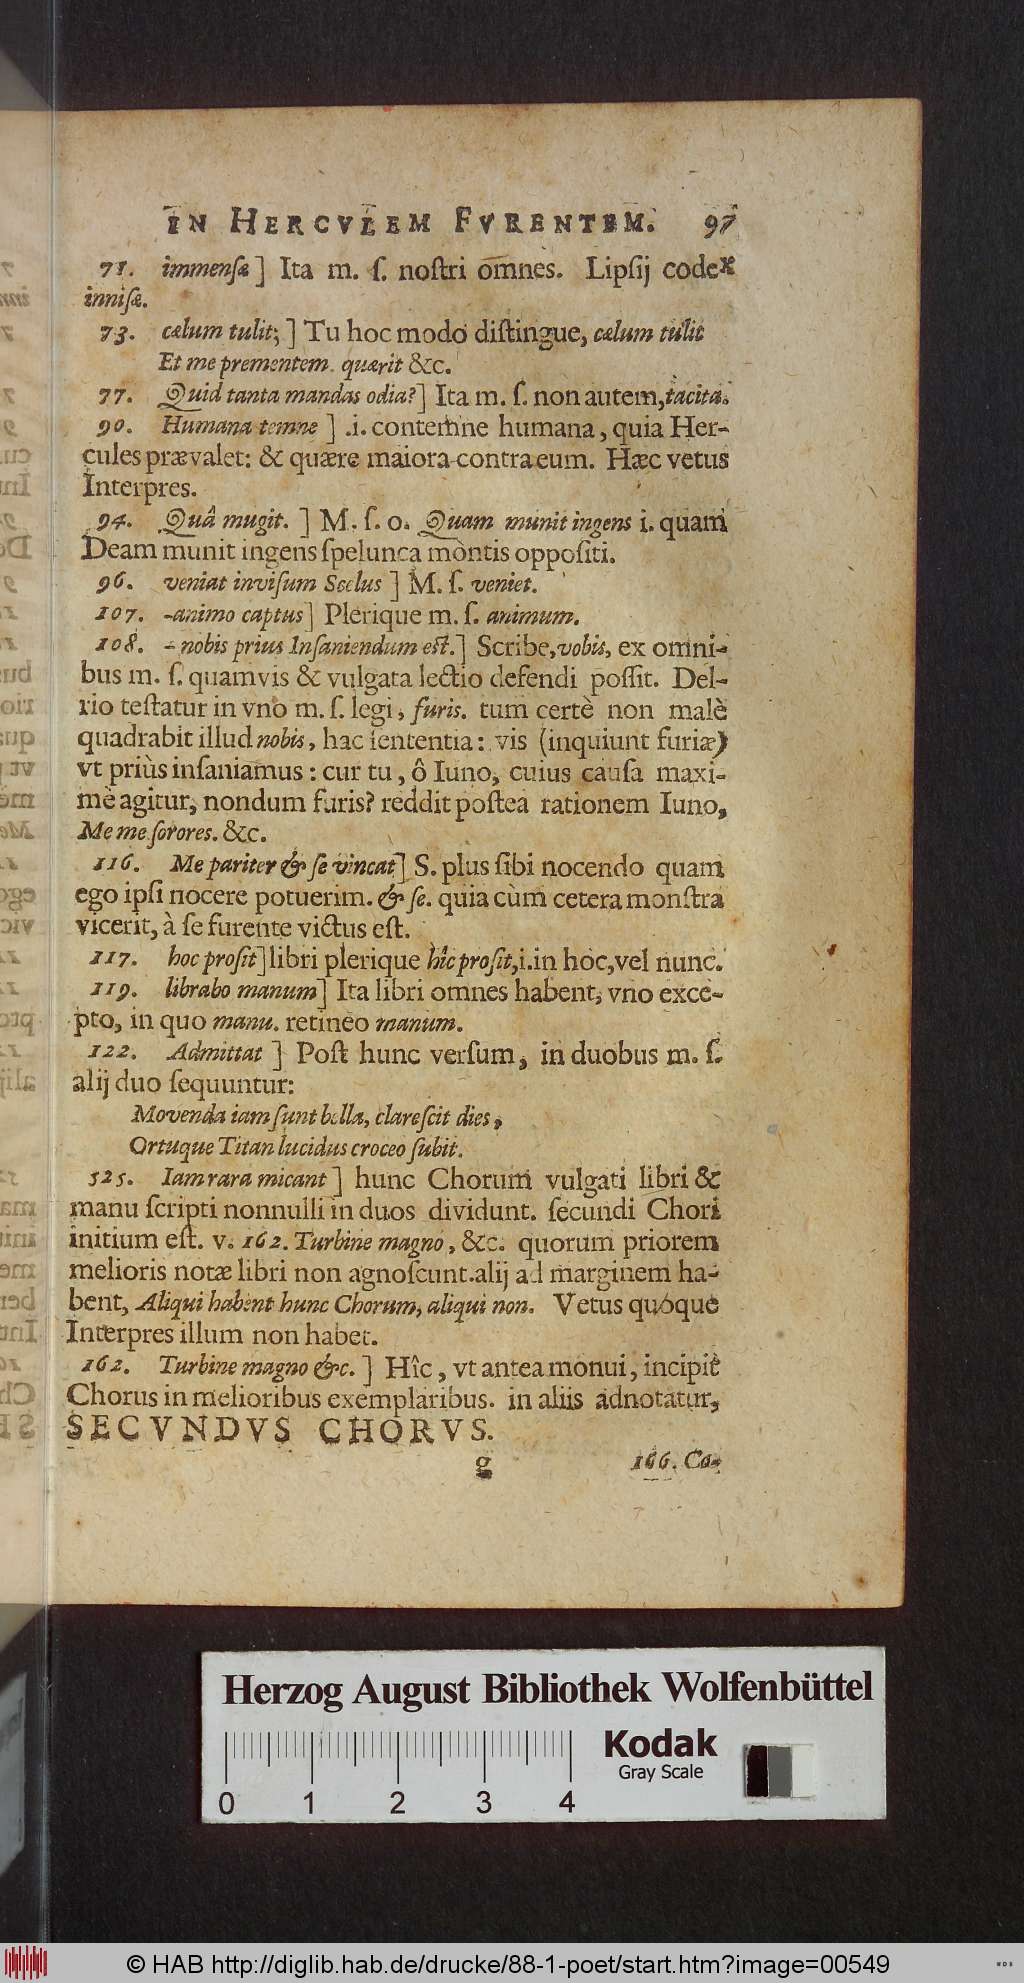 IN HERCVLEM FVRENTEM. 97
71. immensæ] Ita m. ſ. noſtri omnes. Lipſij codex
inniſæ.
73. cælum tulit;] Tu hoc modo diſtingue, cælum tulit
Et me prementem. quærit &c.
77. Quid tanta mandas odia?] Ita m. ſ. non autem, tacita.
90. Humana temne] .i. contemne humana, quia Her-
cules prævalet: & quære maiora contra eum. Hæc vetus
Interpres.
94. Quâ mugit.] M. ſ. o. Quam munit ingens i. quam
Deam munit ingens ſpelunca montis oppoſiti.
96. veniat inviſum Scelus] M. ſ. veniet.
107. -animo captus] Plerique m. ſ. animum.
108. - nobis prius Inſaniendum eſt.] Scribe, vobis, ex omni-
bus m. ſ. quamvis & vulgata lectio defendi poſſit. Del-
rio teſtatur in vno m. ſ. legi, furis. tum certè non malè
quadrabit illud nobis, hac ſententia: vis (inquiunt furiæ)
vt priùs inſaniamus: cur tu, ô Iuno, cuius cauſa maxi-
mè agitur, nondum furis? reddit poſtea rationem Iuno,
Me me ſorores. &c.
116. Me pariter & ſe vincat] S. plus ſibi nocendo quam
ego ipſi nocere potuerim. & ſe. quia cùm cetera monſtra
vicerit, à ſe furente victus eſt.
117. hoc proſit] libri plerique hîc proſit, i. in hoc, vel nunc.
119. librabo manum] Ita libri omnes habent, vno exce-
pto, in quo manu. retineo manum.
122. Admittat] Poſt hunc verſum, in duobus m. ſ.
alij duo ſequuntur:
Movenda iam ſunt bella, clareſcit dies,
Ortuque Titan lucidus croceo ſubit.
525. Iam rara micant] hunc Chorum vulgati libri &
manu ſcripti nonnulli in duos dividunt. ſecundi Chori
initium eſt. v. 162. Turbine magno, &c. quorum priorem
melioris notæ libri non agnoſcunt. alij ad marginem ha-
bent, Aliqui habent hunc Chorum, aliqui non. Vetus quoque
Interpres illum non habet.
162. Turbine magno &c.] Hîc, vt antea monui, incipit
Chorus in melioribus exemplaribus. in aliis adnotatur,
SECVNDVS CHORVS.
g 166. Co-
Herzog August Bibliothek Wolfenbüttel
Kodak
Gray Scale
0 1 2 3 4
© HAB http://diglib.hab.de/drucke/88-1-poet/start.htm?image=00549